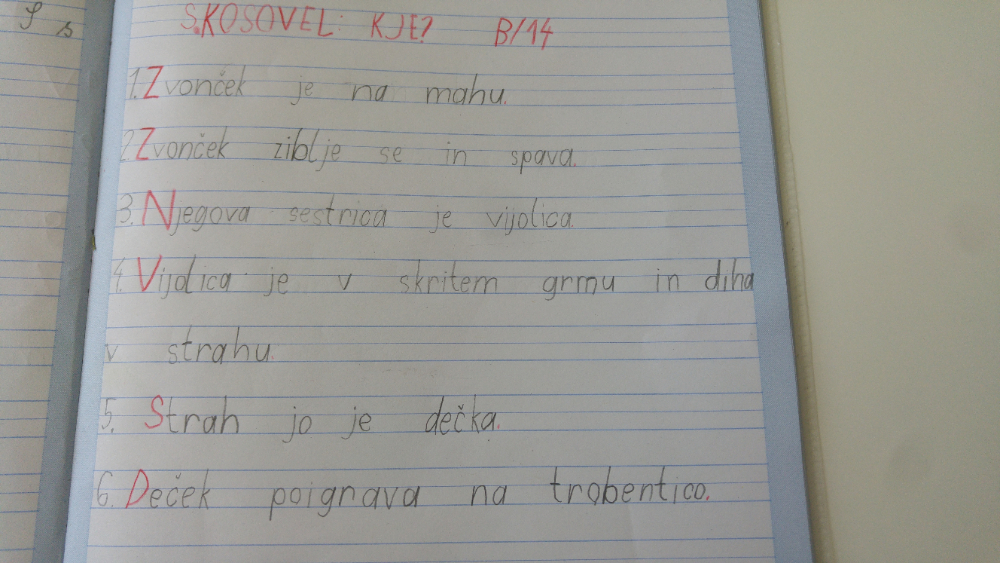 S.KOSOVEL: KJE? B/14
1. Zvonček je na mahu.
2. Zvonček ziblje se in spava.
3. Njegova sestrica je vijolica.
4. Vijolica je v skritem grmu in diha
v strahu.
5. Strah jo je dečka.
6. Deček poignava na trobentico.